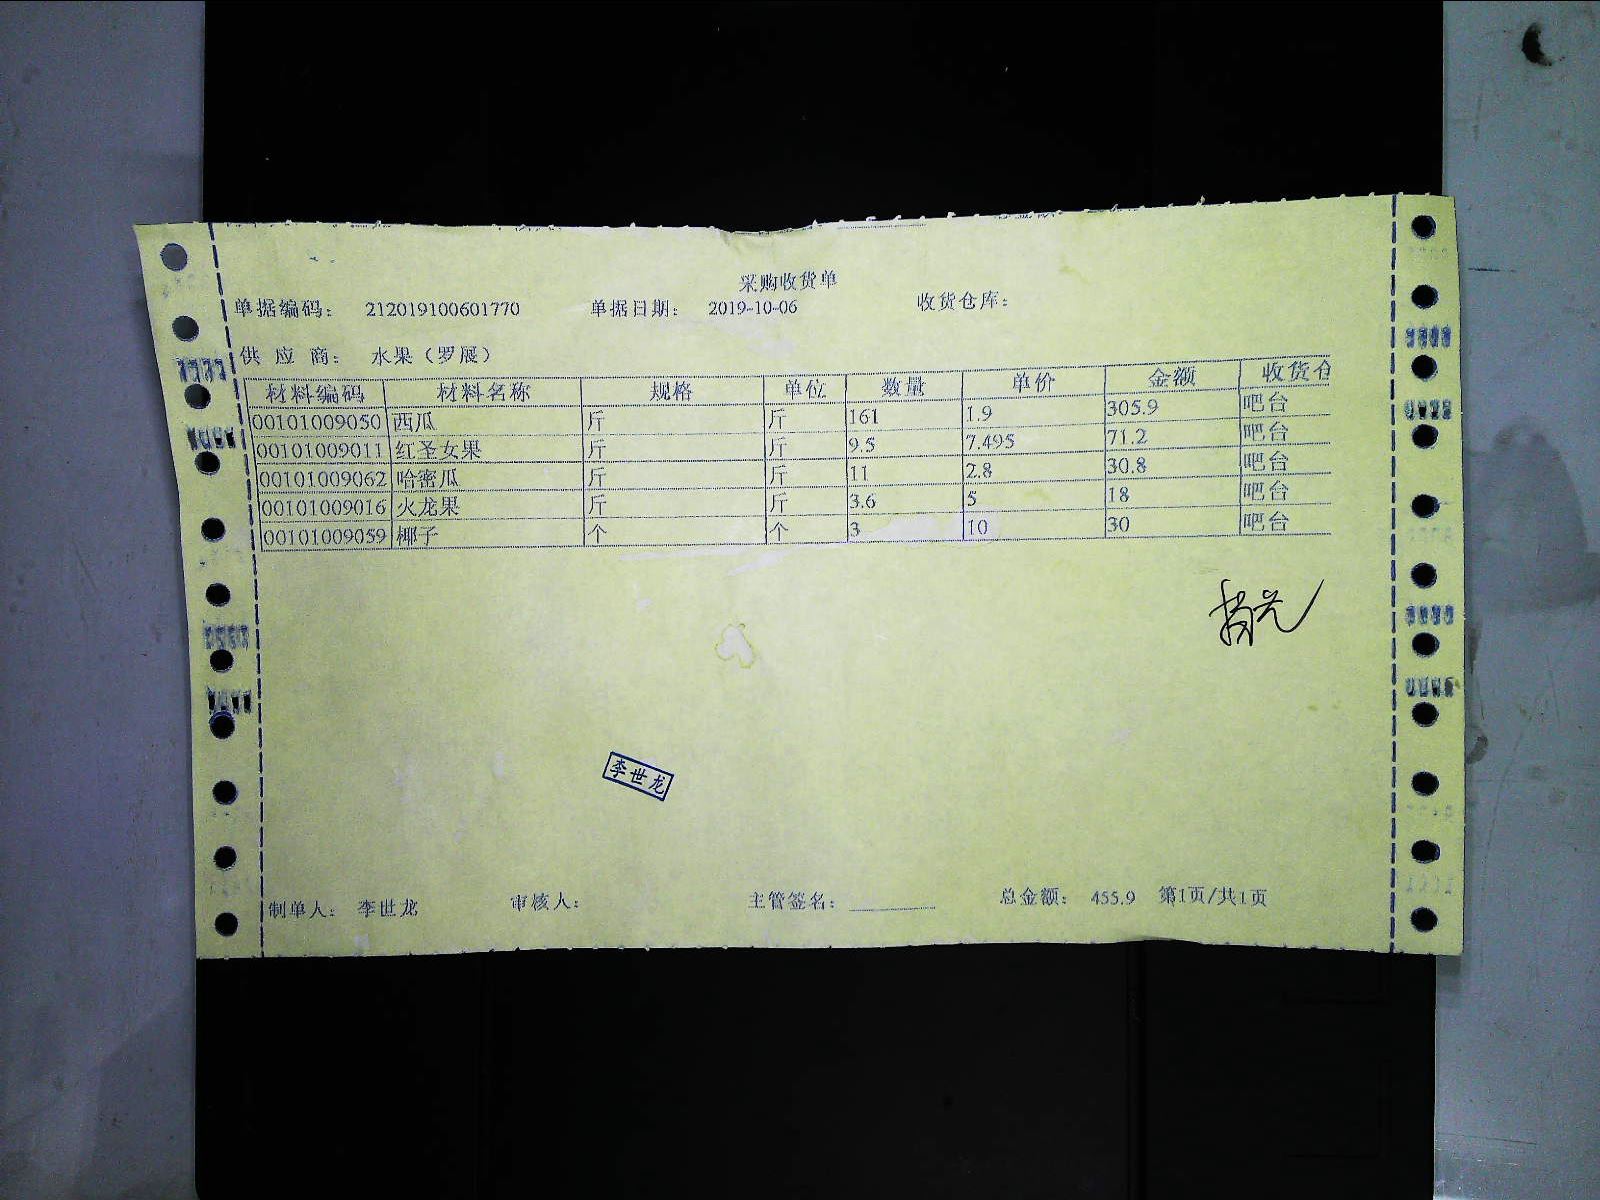 采购收货单
单据编码: 212019100601770 单据日期: 2019-10-06 收货仓库:
供应商: 水果（罗展）
材料编码 材料名称 规格 单位 数量 单价 金额 收货仓
00101009050 西瓜 斤 斤 161 1.9 305.9 吧台
00101009011 红圣女果 斤 斤 9.5 7.495 71.2 吧台
00101009062 哈密瓜 斤 斤 11 2.8 30.8 吧台
00101009016 火龙果 斤 斤 3.6 5 18 吧台
00101009059 椰子 个 个 3 10 30 吧台
李世龙
制单人: 李世龙 审核人: 主管签名: 总金额: 455.9 第1页/共1页